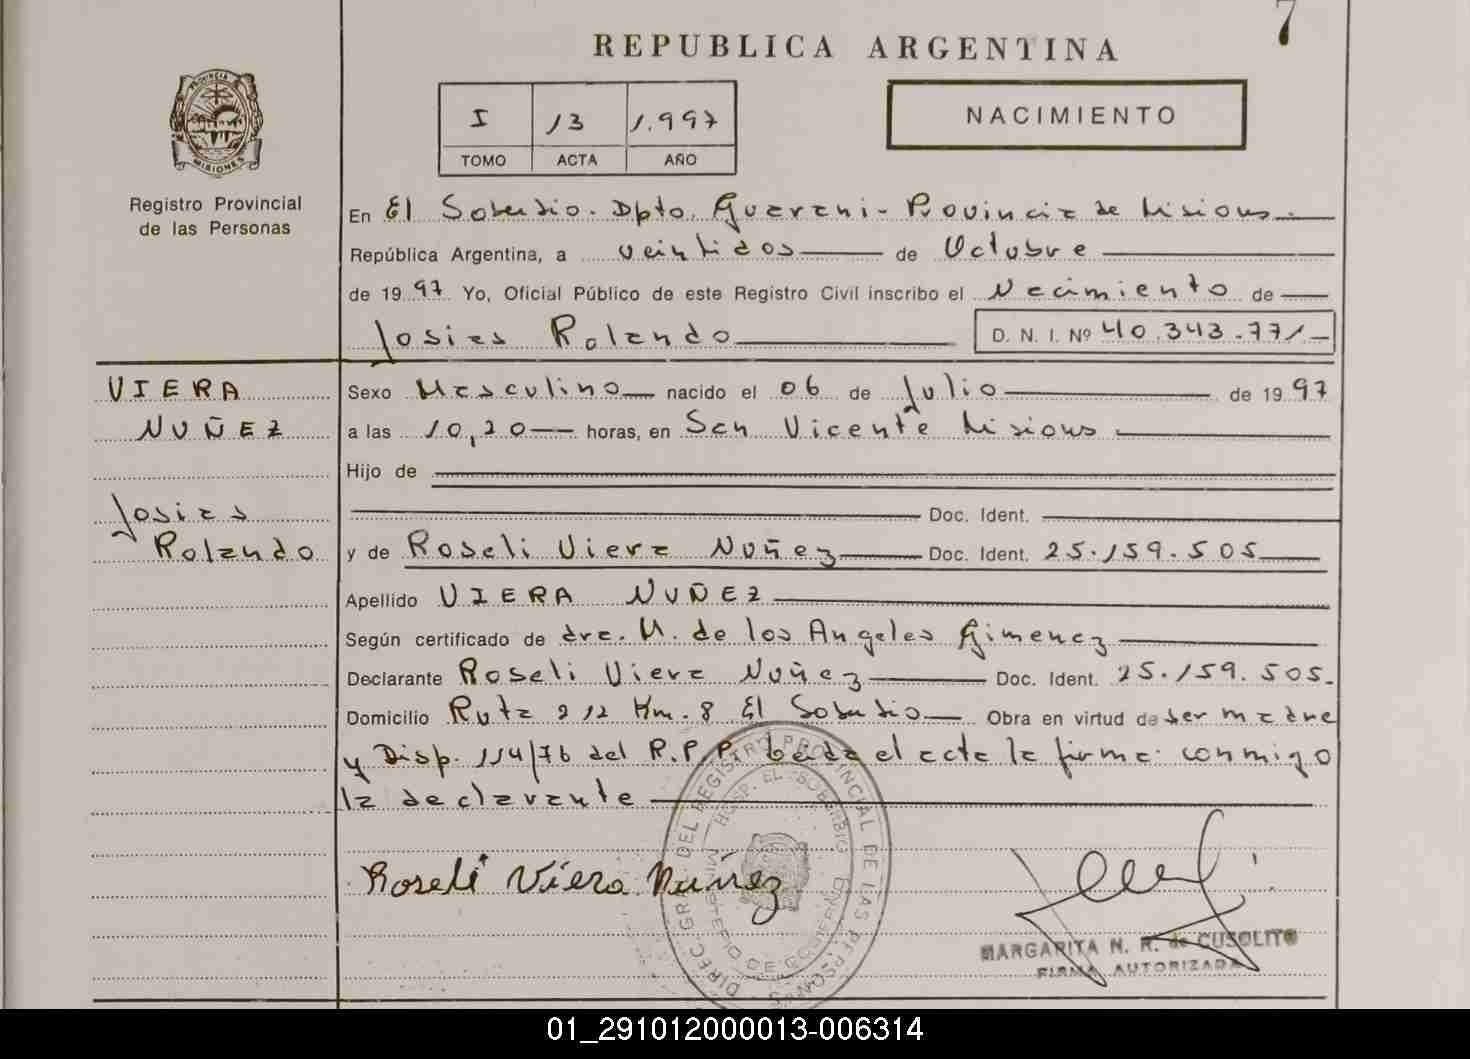 7
REPUBLICA ARGENTINA
I 13 1.997
TOMO ACTA AÑO
NACIMIENTO
PROVINCIA
MISIONES
Registro Provincial
de las Personas
En El Soberbio. Dpto. Guarani - Provincia de Misiones.
República Argentina, a veintidos de Octubre
de 1997 Yo, Oficial Público de este Registro Civil inscribo el Nacimiento de
Josias Rolando D. N. I. Nº 40.343.771-
VIERA
NUÑEZ
Josias
Rolando
Sexo Masculino nacido el 06 de Julio de 1997
a las 10,20 horas, en San Vicente Misiones
Hijo de
Doc. Ident.
y de Roseli Viera Nuñez Doc. Ident. 25.159.505
Apellido VIERA NUÑEZ
Según certificado de dra. M. de los Angeles Gimenez
Declarante Roseli Viera Nuñez Doc. Ident. 25.159.505.
Domicilio Ruta 212 Km. 8 El Soberbio Obra en virtud de ser madre
y Disp. 114/76 del R.P.P. Leida el acta la firma conmigo
la declarante
Roseli Viera Núñez
DIREC. GRAL. DEL REGISTRO PROVINCIAL DE LAS PERSONAS
HOSP. EL SOBERBIO
MINISTERIO DE GOBIERNO
MARGARITA N. R. de CUSOLITO
FIRMA AUTORIZADA
01_291012000013-006314